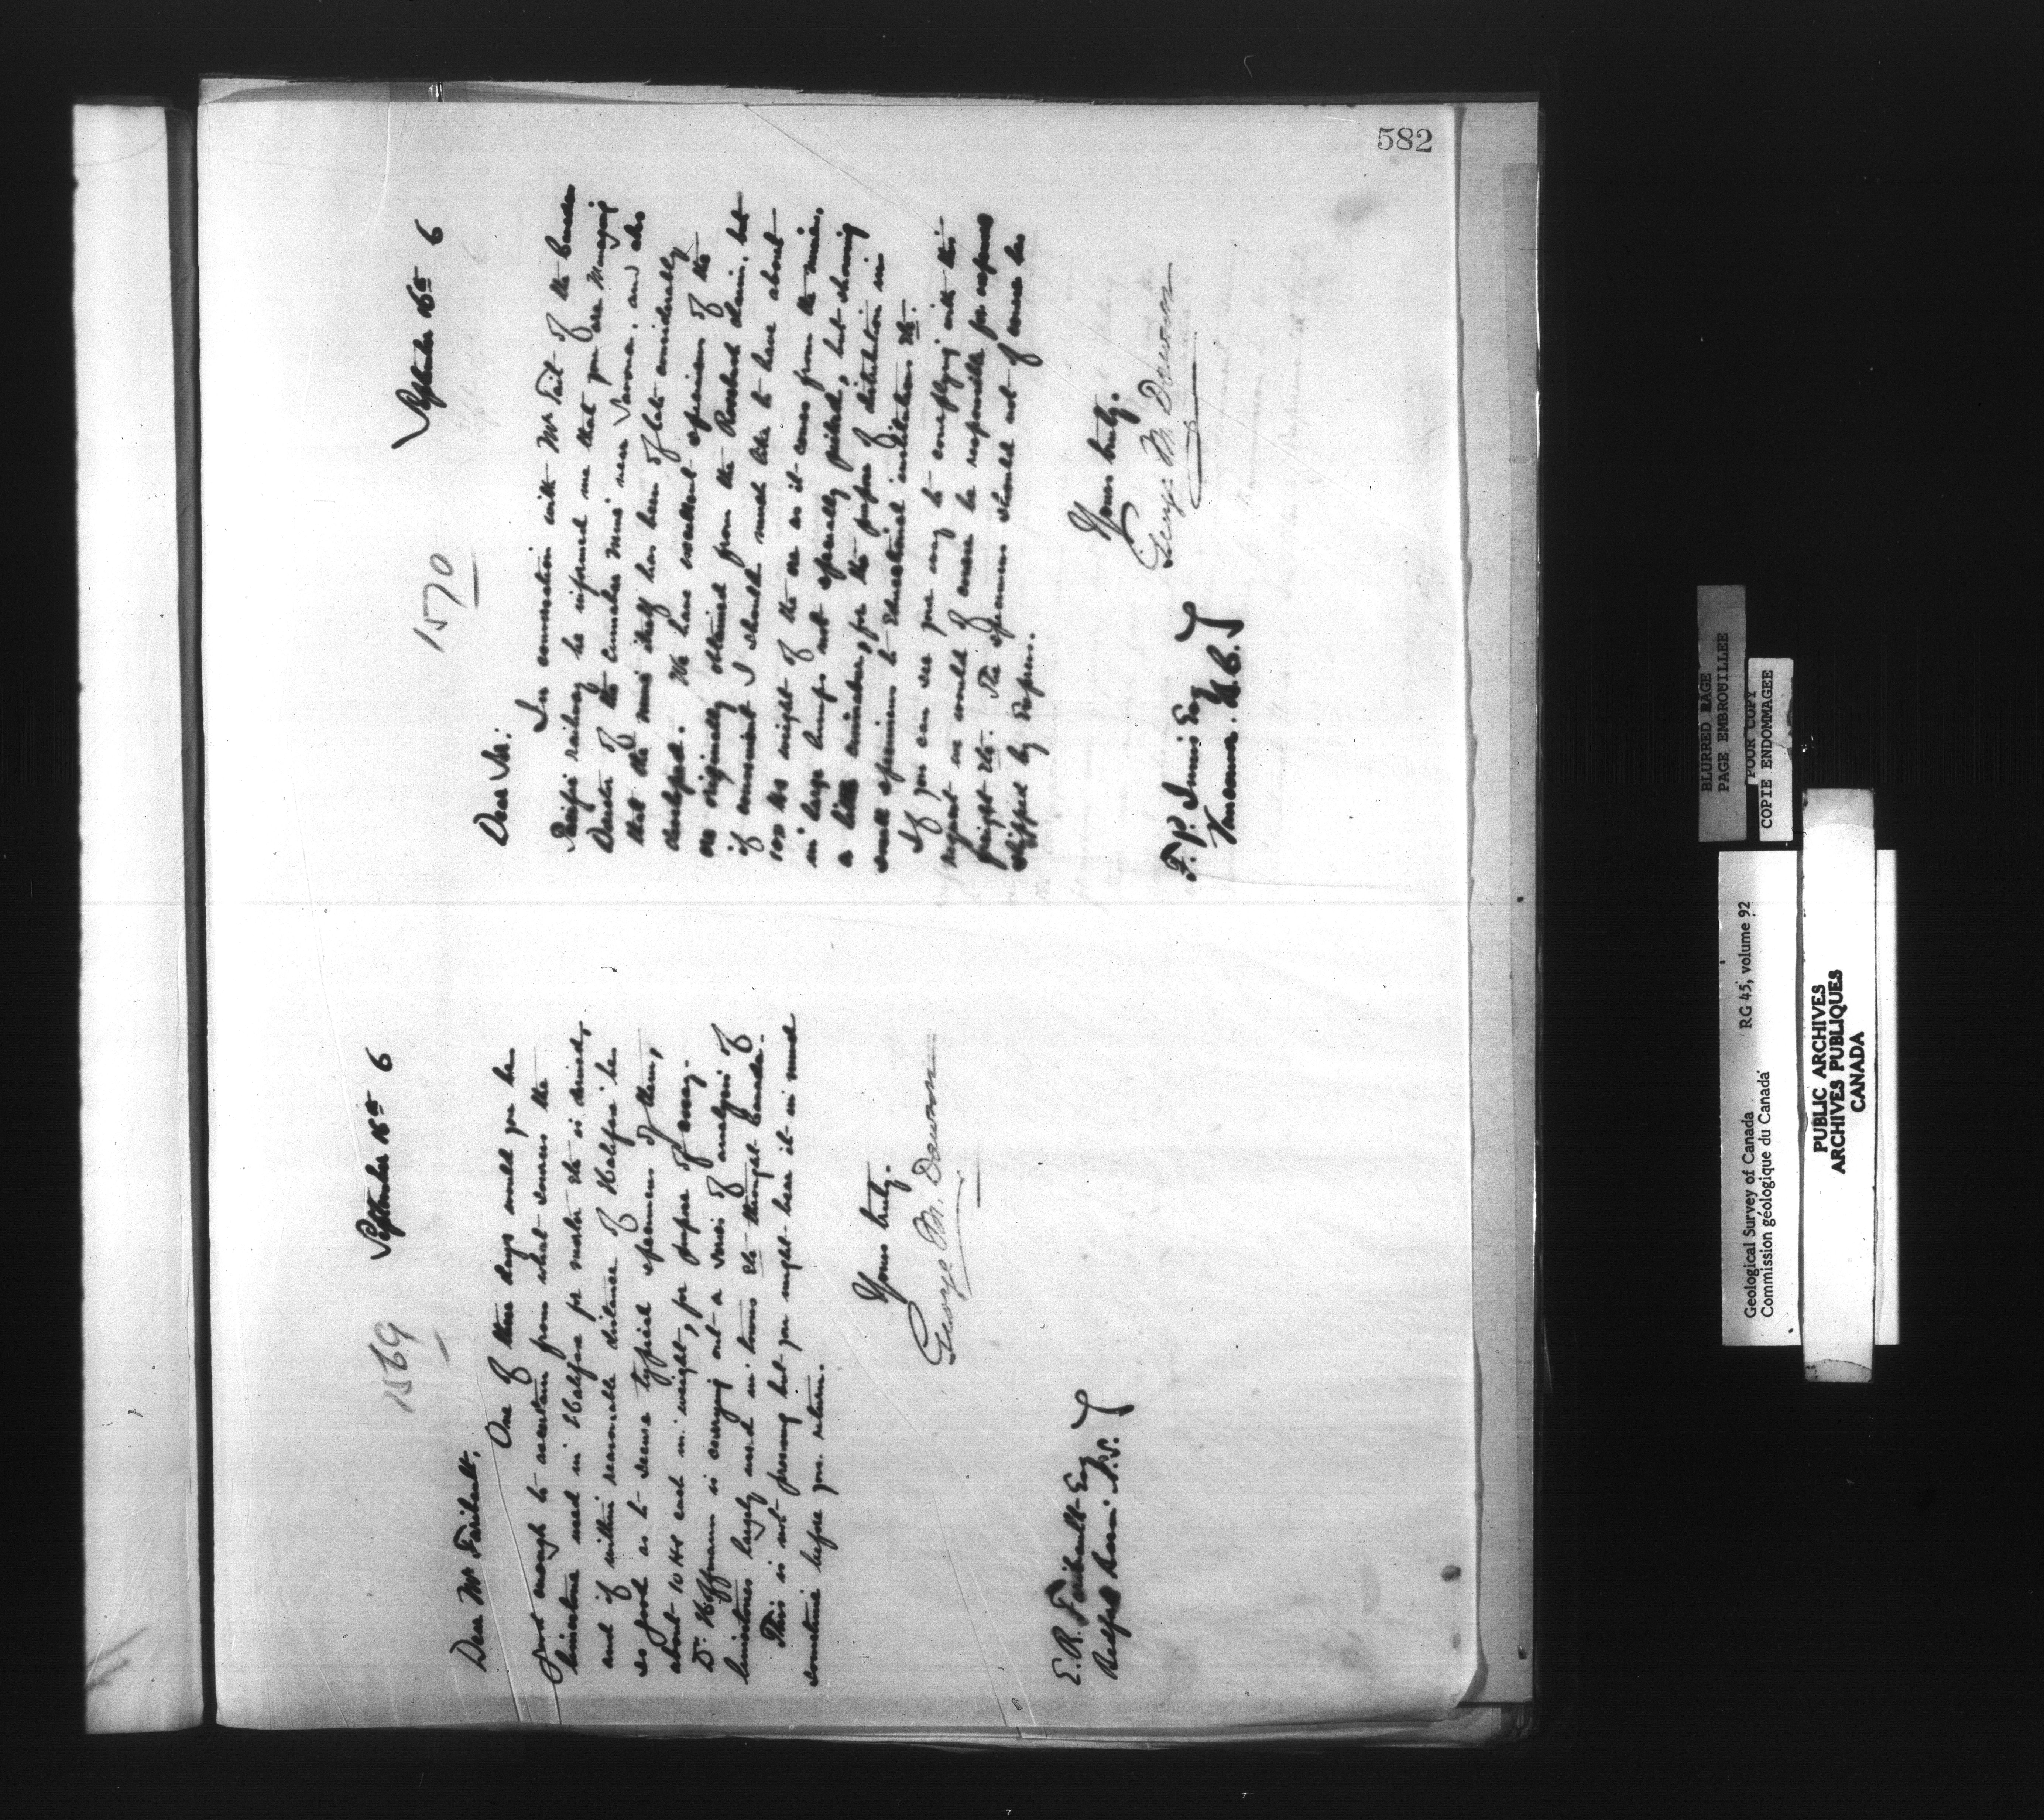 582
1569
September 15th 6
Dear Mr Faribault,
One of these days would you be
good enough to ascertain from what sources the
limestone used in Halifax for mortar etc is derived,
and if within reasonable distance of Halifax be
so good as to secure typical specimens of them,
about 10 lbs each in weight, for purpose of assay.
Dr. Hoffmann is carrying out a series of analyses of
limestones largely used in limes etc through Canada.
This is not pressing but you might bear it in mind
sometime before you return.
Yours truly.
George M. Dawson
E. R. Faribault Esq
N.S.
1570
September 16th 6
Dear Sir:
In conversation with Mr Tait of the Canada
Pacific railway he informed me that you are Managing
Director of the Cinnabar Mine near Savona. and also
that the mine itself has been of late considerably
developed. We have excellent specimens of the
ore originally obtained from the Rosebush claim, but
if convenient I should much like to have about
100 lbs weight of the ore as it comes from the mine,
in large lumps not specially picked, but showing
a little cinnabar, for the purpose of distribution in
small specimens to Educational institutions etc.
If you can see your way to complying with this
request we would of course be responsible for expenses
freight etc. The specimens should not of course be
shipped by Express.
Yours truly.
George M. Dawson
F. P. Innis Esq
Vancouver. B.C.
BLURRED PAGE
PAGE EMBROUILLEE
POOR COPY
COPIE ENDOMMAGEE
Geological Survey of Canada RG 45, volume 92
Commission géologique du Canada
PUBLIC ARCHIVES
ARCHIVES PUBLIQUES
CANADA